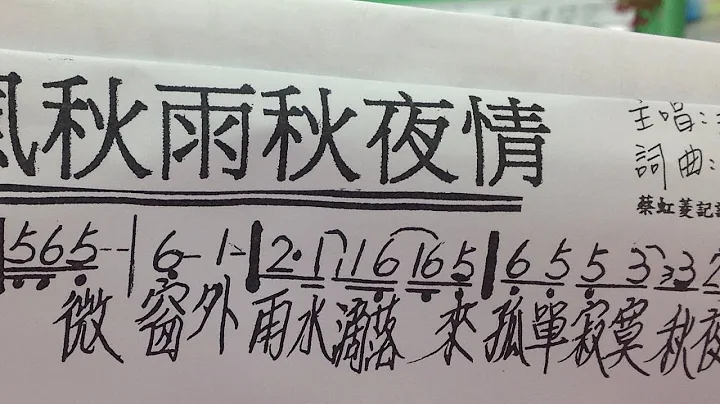 風秋雨秋夜情
主唱:
詞曲:
蔡虹菱記譜
565--|6-1-|2·1,1616165|6553332
微 窗外 雨水滴落 來 孤單寂寞 秋夜